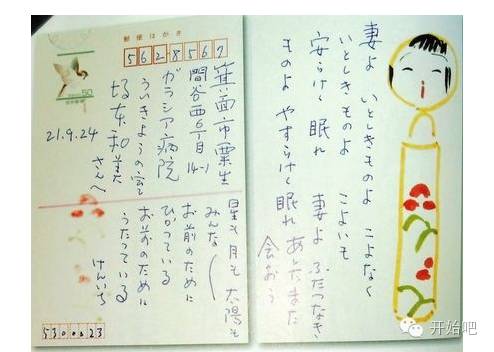 郵便はがき
562-8567
50
箕面市粟生
間谷西6丁目
14-1
ガラシア病院
ういきょうの室
坂本和美
さんへ
21.9.24
星も月も太陽も
みんな
お前のために
ひかっている
お前のために
うたっている
けんいち
5300023
妻よ いとしきものよ こよなく
いとしきものよ こよいも
安らけく 眠れ 妻よ ふたつなき
ものよ やすらけく眠れ あしたまた
会おう
开始吧